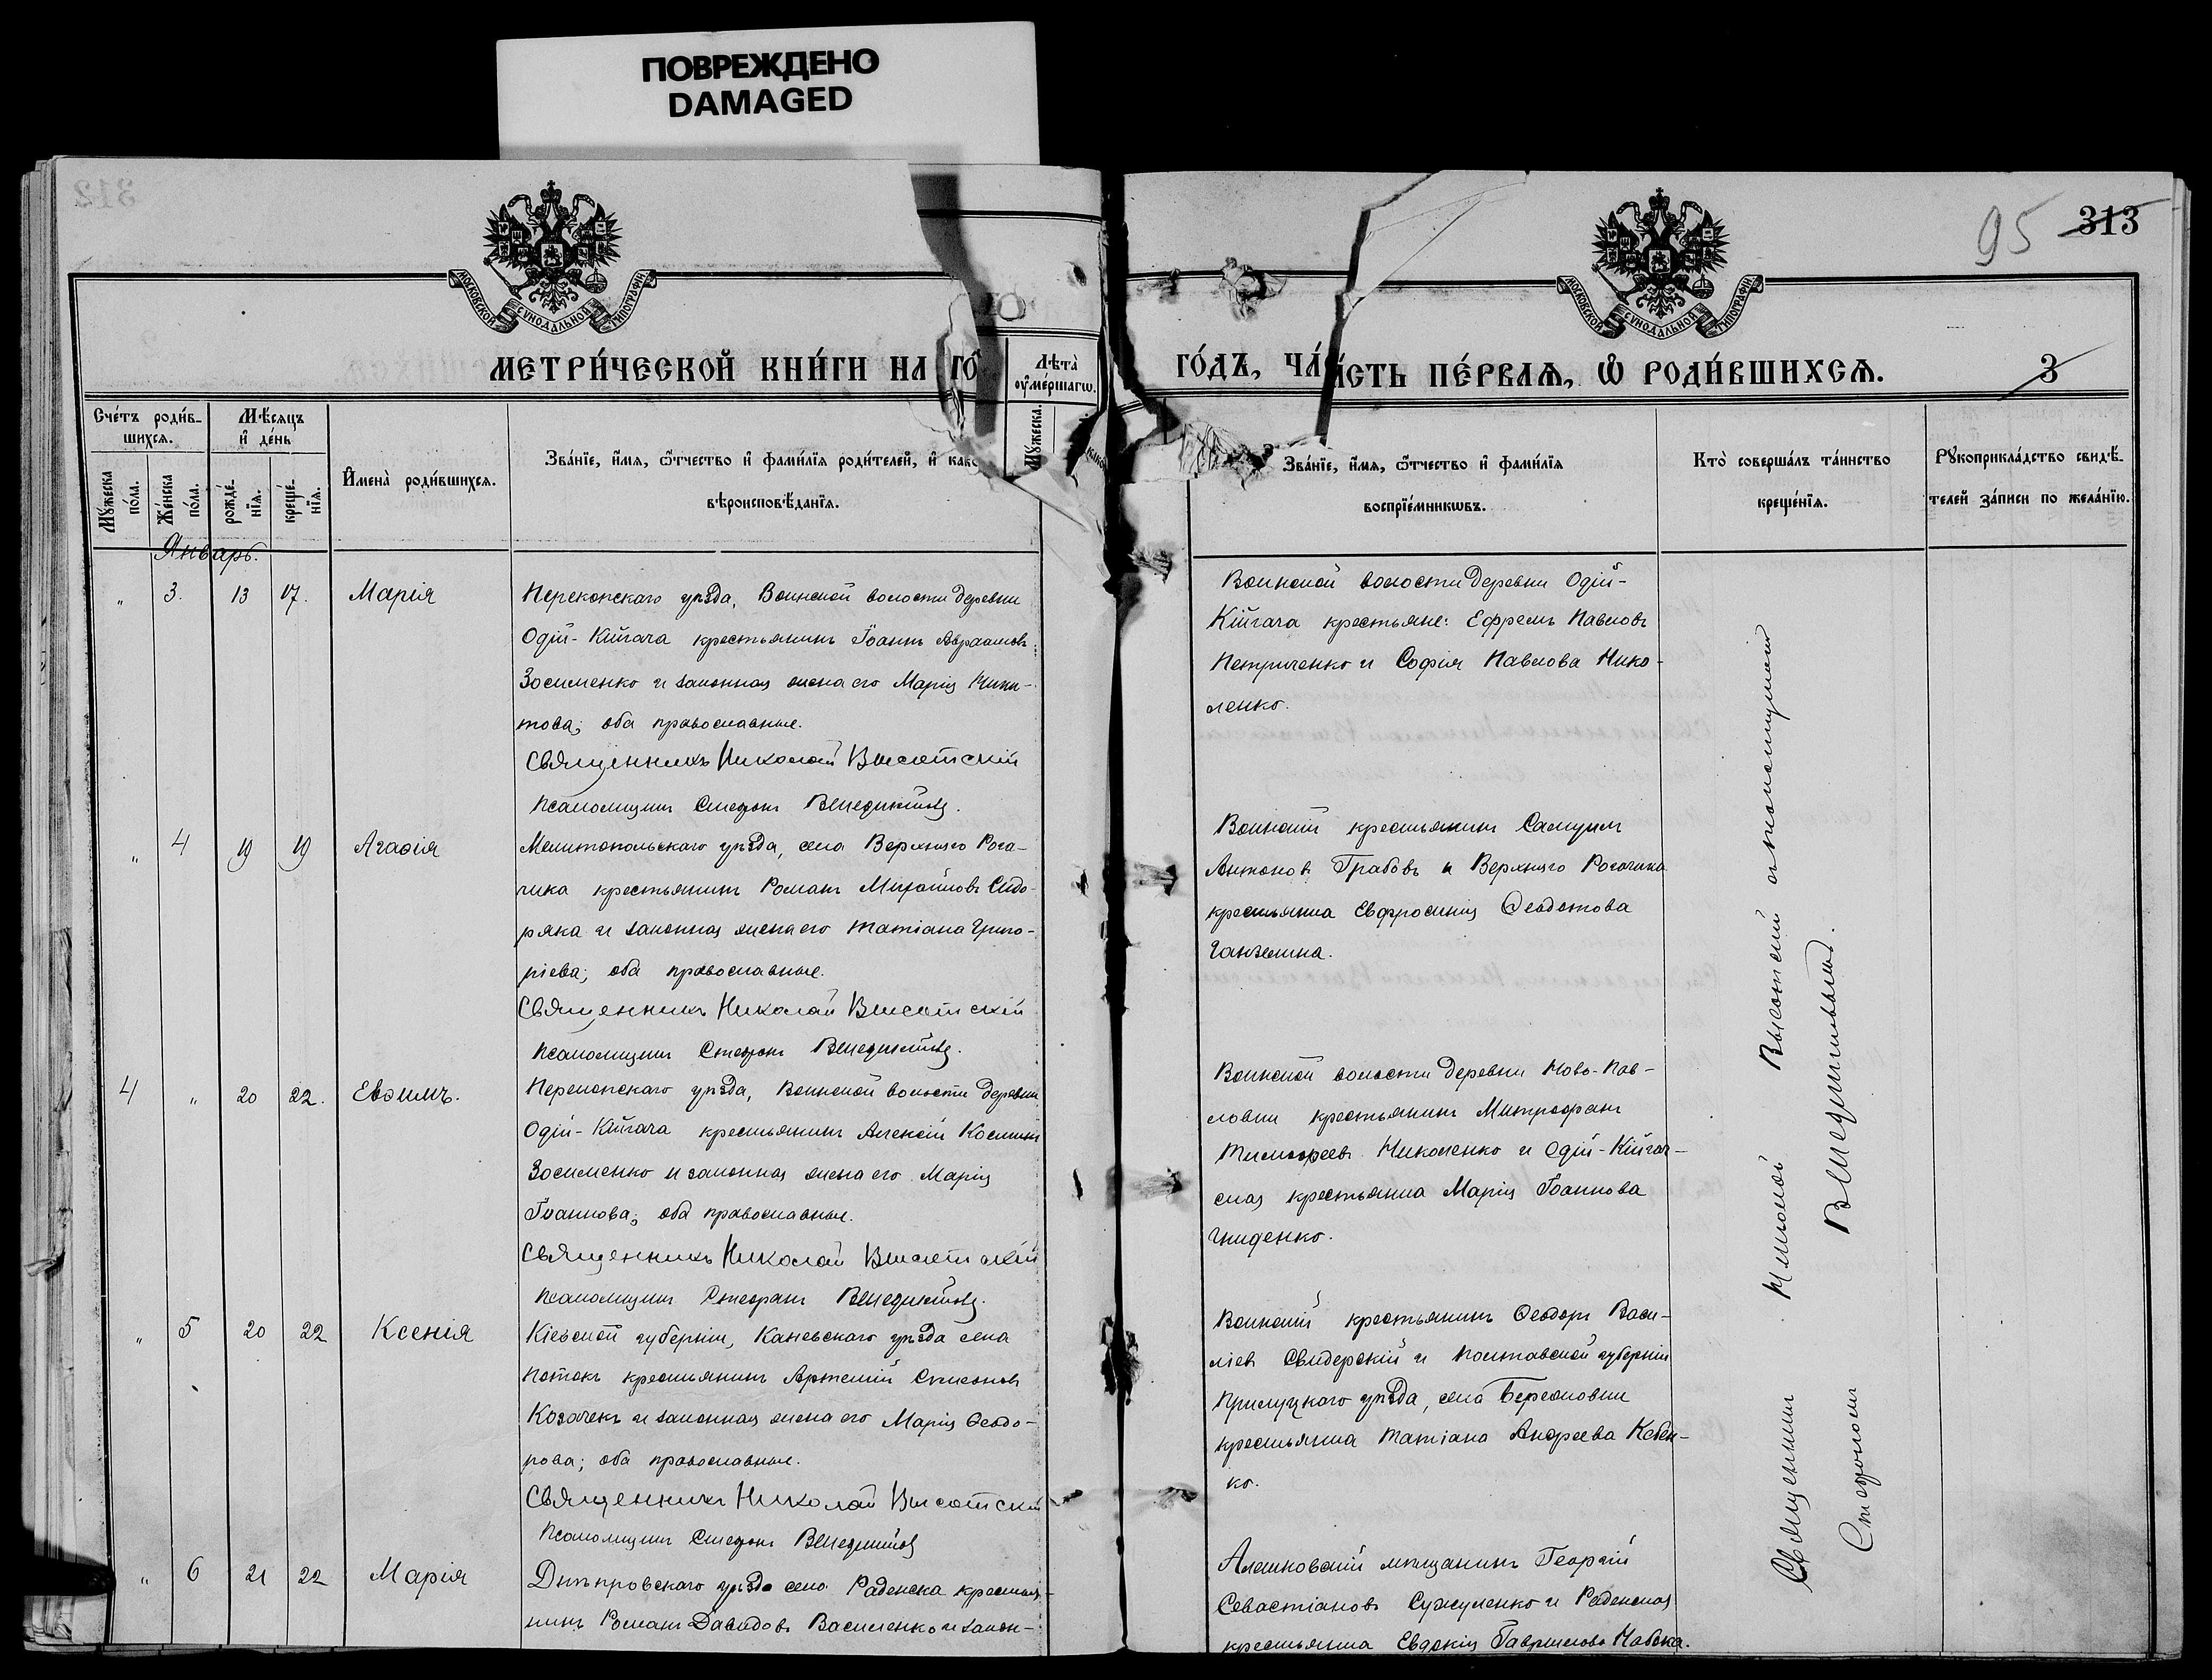 ПОВРЕЖДЕНО
DAMAGED
312
МОСКОВСКОЙ СУНОДАЛЬНОЙ ТИПОГРАФІИ
МОСКОВСКОЙ СУНОДАЛЬНОЙ ТИПОГРАФІИ
95 313
МЕТРИ́ЧЕСКОЙ КНИ́ГИ НА ГО
Лѣта̀
оу҆ме́ршагѡ.
Мꙋ́жеска.
ГО́ДЪ, ЧА́СТЬ ПЕ́РВАѦ, Ѡ҆ РОДИ́ВШИХСѦ.
3
Сче́тъ роди́в-
шихсѧ.
Мꙋ́жеска
по́ла.
Же́нска
по́ла.
Мѣ́сѧцъ
и҆ де́нь
рожде́-
нїѧ.
креще́-
нїѧ.
И҆мена̀ роди́вшихсѧ.
Зва́нїе, и҆́мѧ, ѻ҆́тчество и҆ фами́лїѧ роди́телей, и҆ како
вѣроисповѣ́данїѧ.
Зва́нїе, и҆́мѧ, ѻ҆́тчество и҆ фами́лїѧ
воспрїе́мникѡвъ.
Кто̀ соверша́лъ та́инство
креще́нїѧ.
Рꙋкоприкла́дство свидѣ́-
телей за́писи по жела́нїю.
Январь.
" 3. 13 17. Марія
Перекопскаго уѣзда, Воинской волости деревни
Одій-Кіигача крестьянинъ Іоаннъ Авраамовъ
Зосименко и законная жена его Марія Ники-
това; оба православные.
Священникъ Николай Высотскій
Псаломщикъ Стефанъ Венедиктовъ.
Воинской волости деревни Одій-
Кіигача крестьяне: Ефремъ Павловъ
Петриченко и Софія Павлова Нико-
ленко.
" 4 19 19 Агаѳія
Мелитопольскаго уѣзда, села Верхняго Рога-
чика крестьянинъ Романъ Михайловъ Сидо-
ряка и законная жена его Татіана Григо-
ріева; оба православные.
Священникъ Николай Высотскій
Псаломщикъ Стефанъ Венедиктовъ.
Воинскій крестьянинъ Самуилъ
Антоновъ Грабовъ и Верхняго Рогачика
крестьянка Евфросинія Ѳеодотова
4 " 20 22. Евѳимъ.
Перекопскаго уѣзда, Воинской волости деревни
Одій-Кіигача крестьянинъ Алексій Косминъ
Зосименко и законная жена его Марія
Іоаннова; оба православные.
Священникъ Николай Высотскій
Псаломщикъ Стефанъ Венедиктовъ.
Воинской волости деревни Ново-Пав-
ловки крестьянинъ Митрофанъ
Тимофеевъ Николенко и Одій-Кіигач-
ская крестьянка Марія Іоаннова
Гниденко.
" 5 20 22 Ксенія
Кіевской губерніи, Каневскаго уѣзда села
Потокъ крестьянинъ Артемій Симеоновъ
Козаченъ и законная жена его Марія Ѳеодо-
рова; оба православные.
Священникъ Николай Высотскій
Псаломщикъ Стефанъ Венедиктовъ
Воинскій крестьянинъ Ѳеодоръ Васи-
ліевъ Свидерскій и Полтавской губерніи
Прилуцкаго уѣзда, села Березовки
крестьянка Татіана Андреева Кебен-
ко.
" 6 21 22 Марія
Днѣпровскаго уѣзда села Раденска крестья-
нинъ Романъ Давидовъ Василенко и закон-
Алешковскій мѣщанинъ Георгій
Севастіановъ Сужуленко и Раденская
крестьянка Евдокія Гавриилова
Священникъ Николай Высотскій съ псаломщикомъ
Стефаномъ Венедиктовымъ.